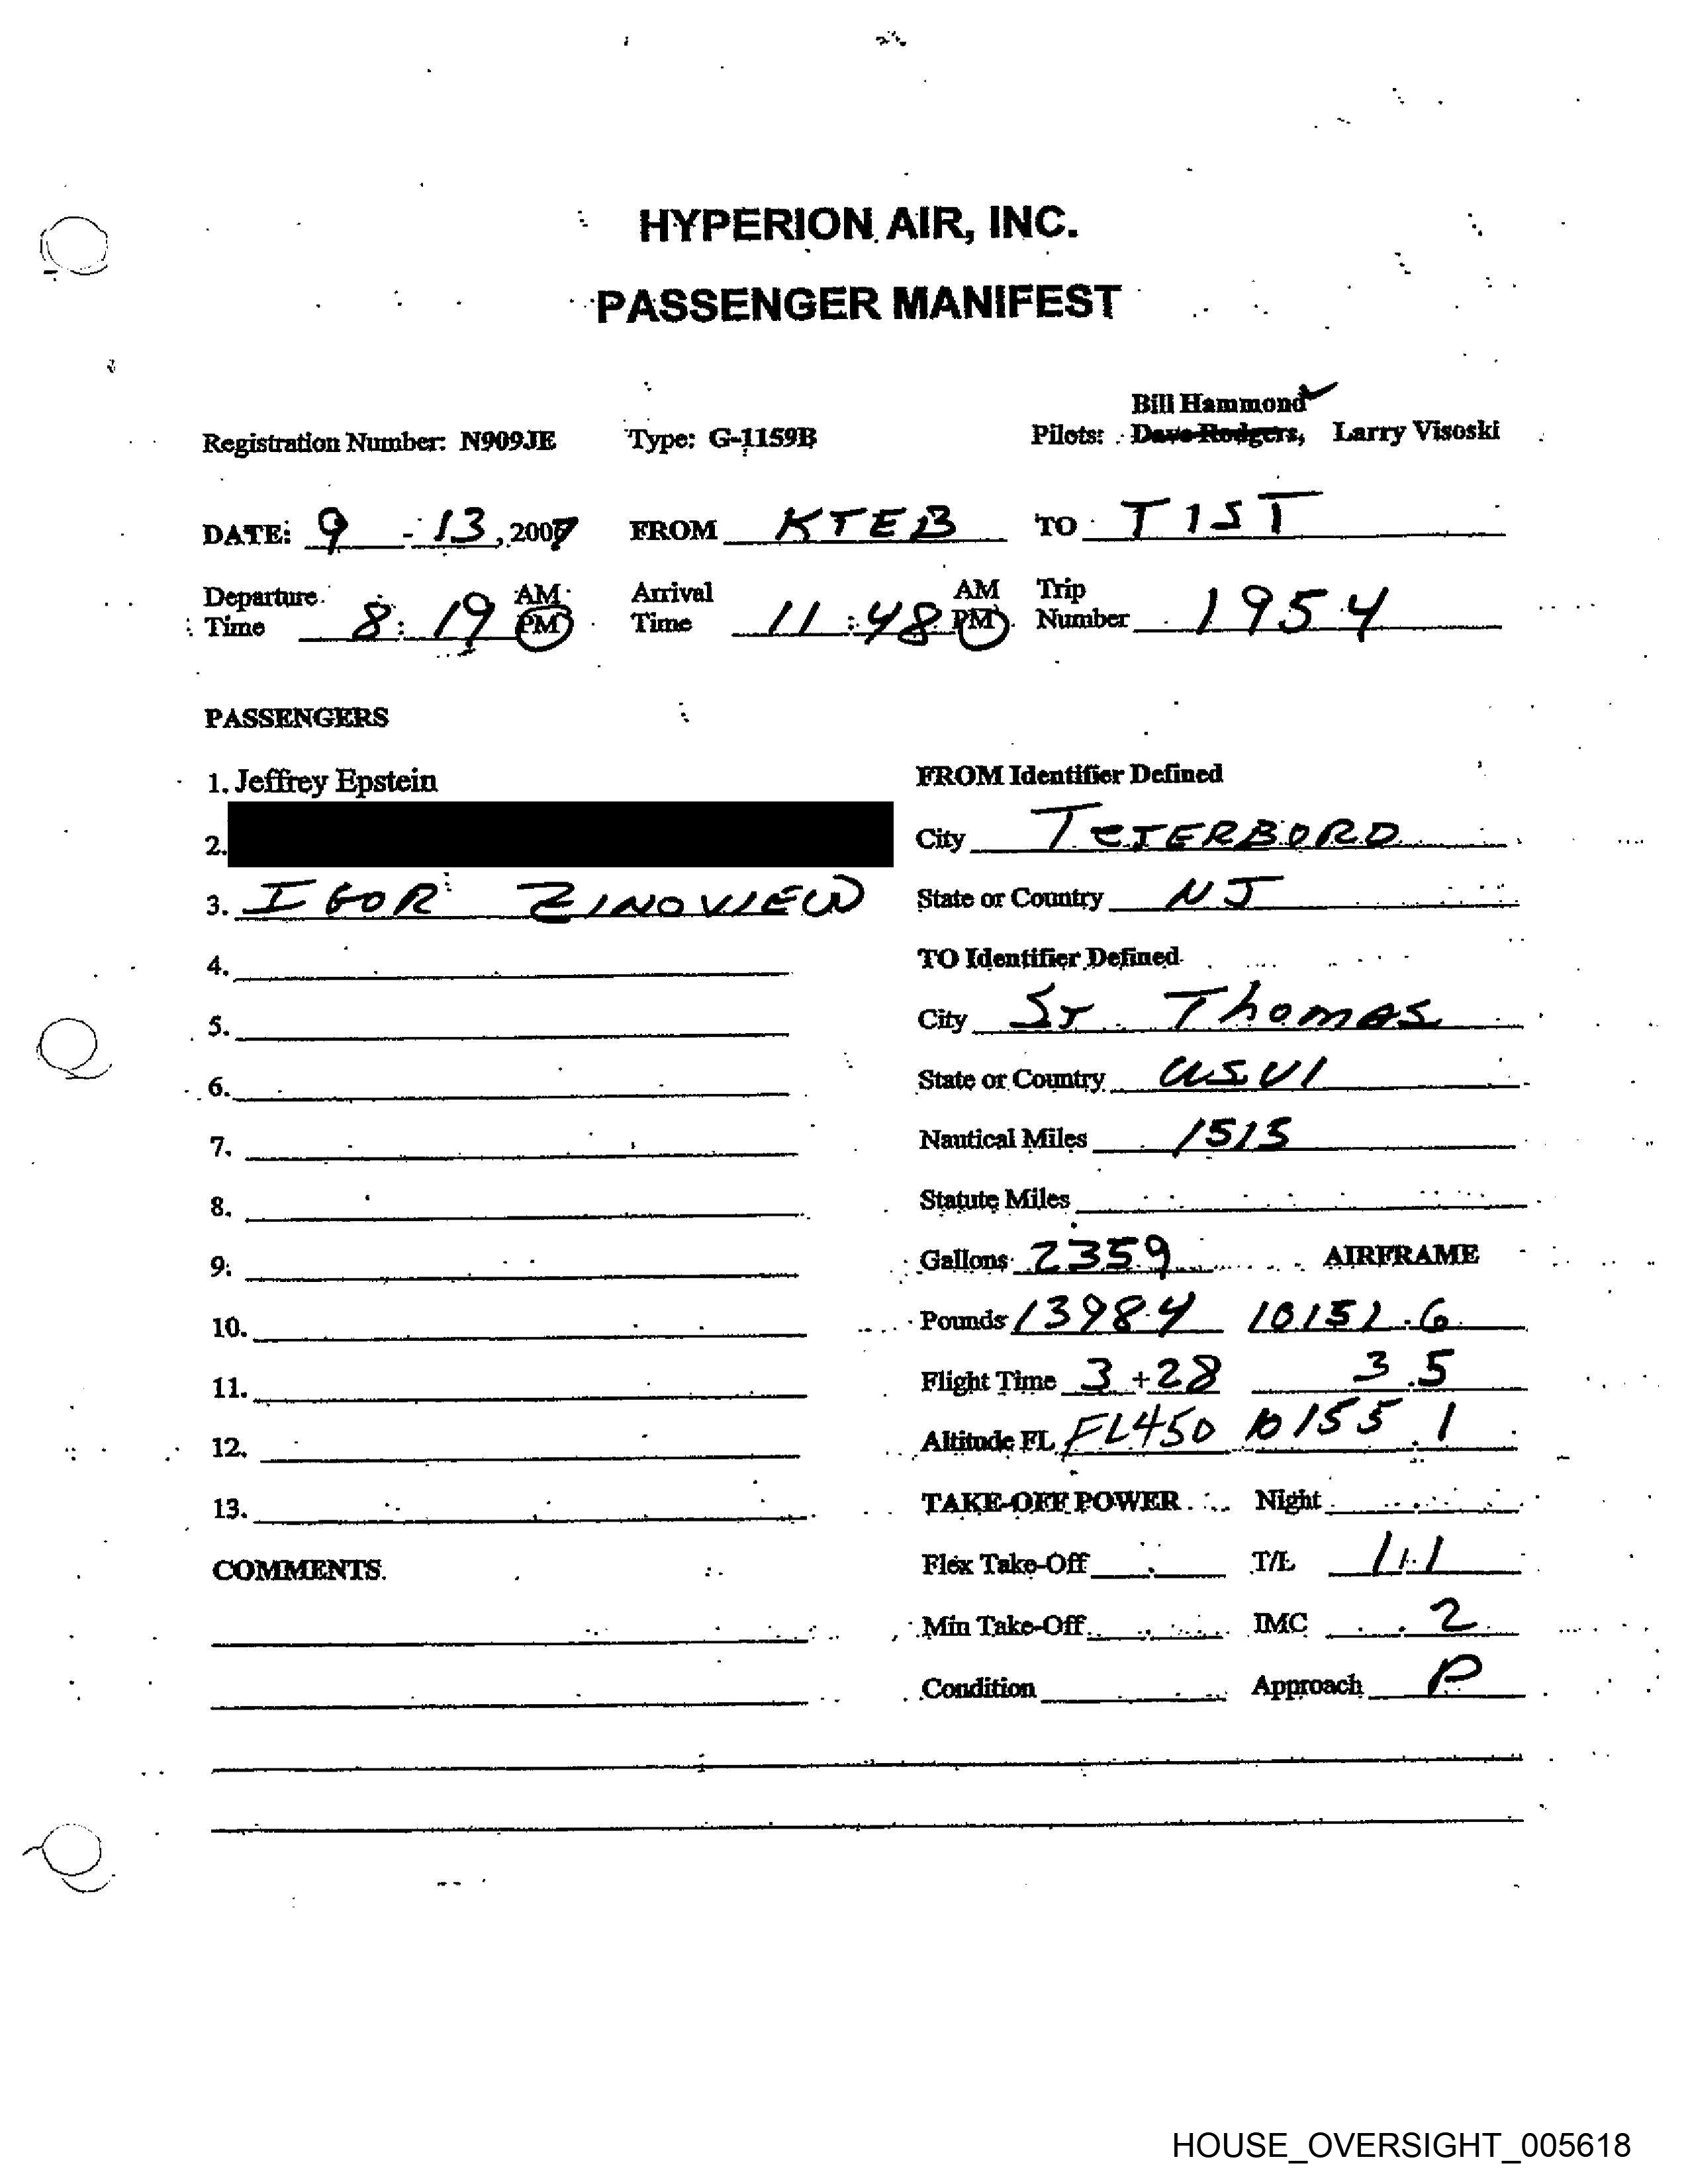 HYPERION AIR, INC.
PASSENGER MANIFEST
Bill Hammond
Registration Number: N909JE Type: G-1159B Pilots: Dave Rodgers, Larry Visoski
DATE: 9 - 13, 2007 FROM KTEB TO TIST
Departure Time 8:19 AM PM Arrival Time 11:48 AM PM Trip Number 1954
PASSENGERS
1. Jeffrey Epstein
FROM Identifier Defined
2.
City TETERBORO
3. IGOR ZINOVIEW
State or Country NJ
4.
TO Identifier Defined
5.
City ST Thomas
6.
State or Country USVI
7.
Nautical Miles 1513
8.
Statute Miles
9.
Gallons 2359 AIRFRAME
10.
Pounds 13984 10151.6
11.
Flight Time 3+28 3.5
12.
Altitude FL FL450 10155.1
13.
TAKE-OFF POWER Night
COMMENTS
Flex Take-Off T/L 1/1
Min Take-Off IMC .2
Condition Approach P
HOUSE_OVERSIGHT_005618